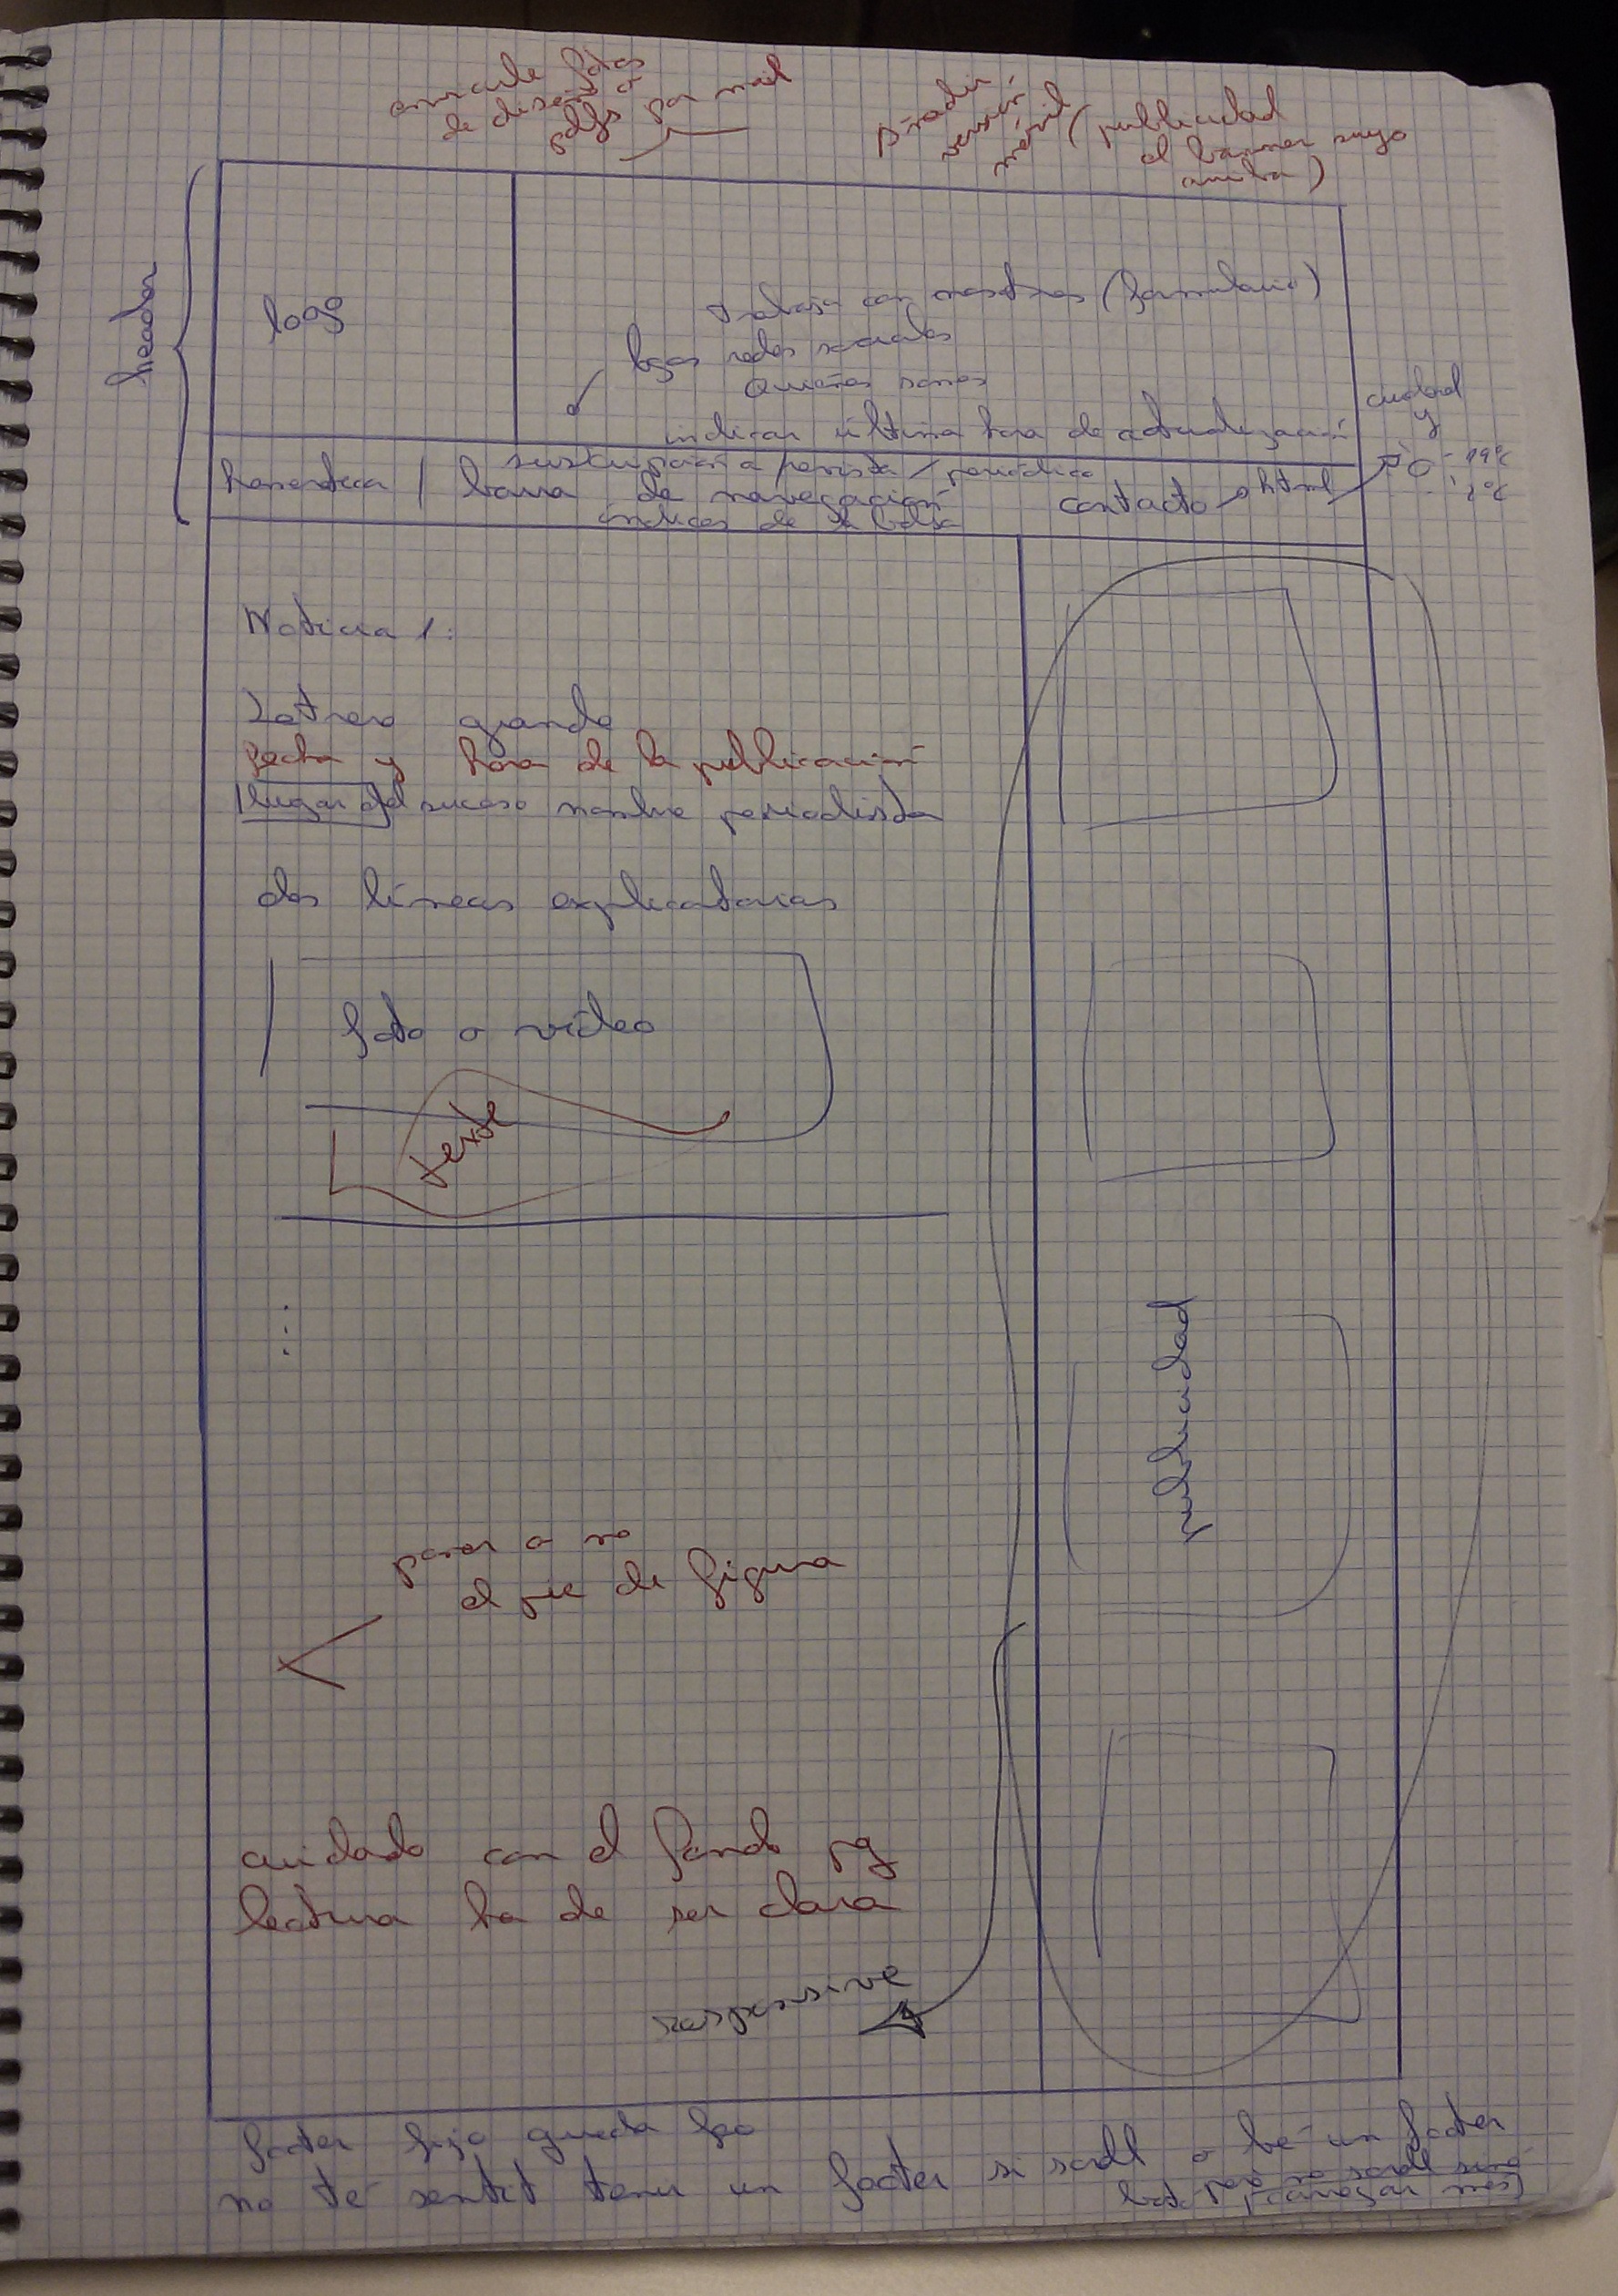 enviarle fotos
de diseños o
pdfs por mail
añadir
versión
móvil (publicidad
el banner suyo
arriba)
header
logo
trabaja con nosotros (formulario)
logos redes sociales
Quienes somos
indicar última hora de actualización
suscripción a revista / periódico
hemeroteca / barra de navegación
contacto → html
índices de la bolsa
Noticia 1:
Letrero grande
fecha y hora de la publicación
lugar del suceso nombre periodista
dos líneas explicatorias
foto o vídeo
texte
publicidad
poner o no
el pie de figura
cuidado con el fondo pq
lectura ha de ser clara
responsive
footer fijo queda feo
no té sentit tenir un footer si scroll o bé un footer
però no scroll sinó
botó (carregar més)